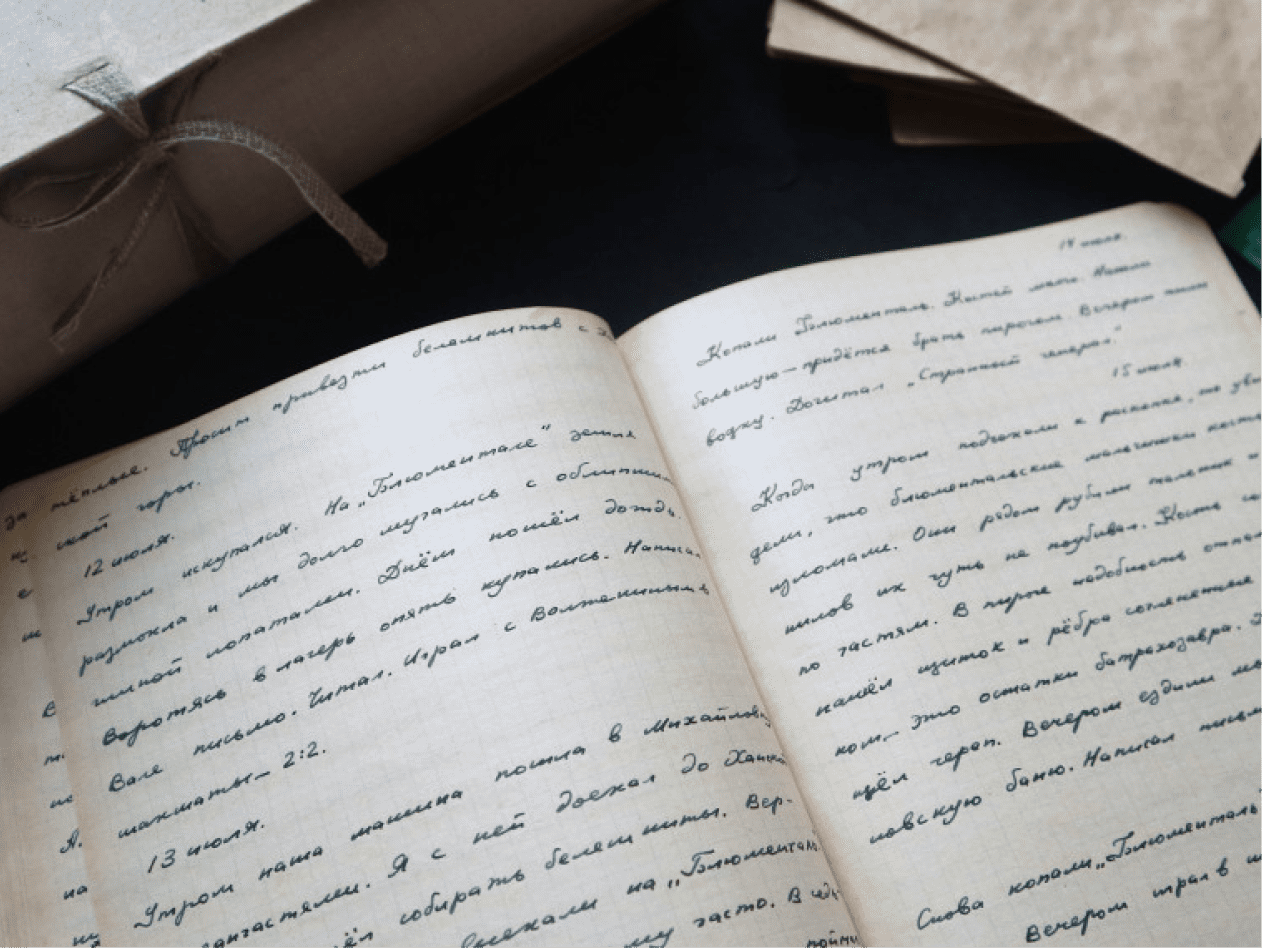 за тёплые. Просим привезти белемнитов с
ской горы.
12 июля.
Утром искупался. На „Блюментале" земля
размокла и мы долго мучались с облипшей
глиной лопатами. Днём пошёл дождь.
Воротясь в лагерь опять купались. Написал
Вале письмо. Читал. Играл с Волжениным в
шахматы – 2:2.
13 июля.
Утром наша машина пошла в Михайловку
за запчастями. Я с ней доехал до
собирать белемниты. Вер-
выехали на „Блюменталь
часто. В
14 июля.
Копали Блюменталь. Костей мало. Нашли
большую – придётся брать пирогом. Вечером пили
водку. Дочитал „Странный
15 июля.
Когда утром подъехали к раскопке, то уви-
дели, что блюментальские мальчишки кости
изломали. Они рядом рубили тальник и
их чуть не поубивал. Кость
по частям. В пироге
нашёл щиток и рёбра
ком – это остатки батрахозавра.
щёл череп. Вечером ездили
ловскую баню. Написал письмо
Снова копали „Блюменталь"
Вечером играл в
В
А.
на